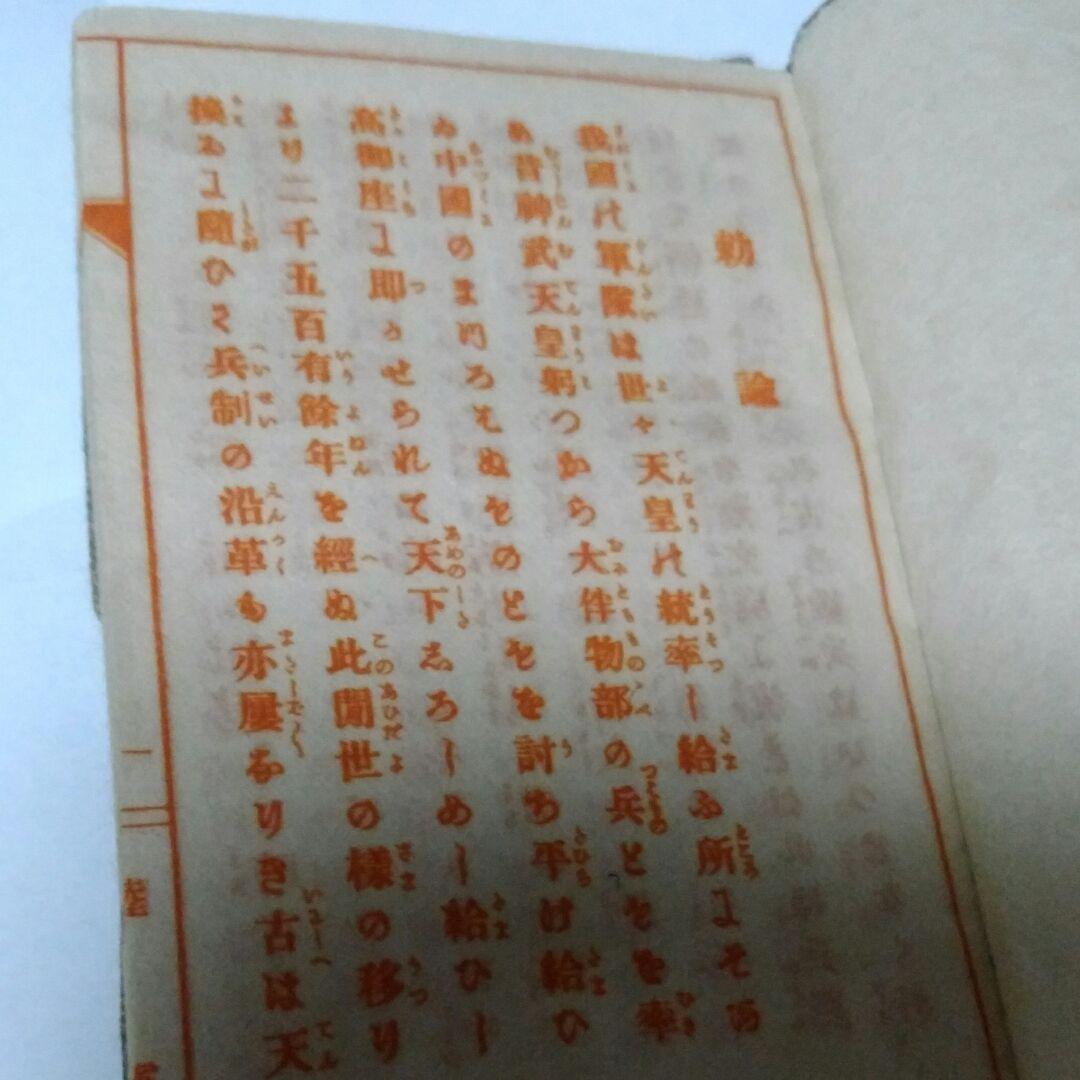 勅諭
我國の軍隊は世々天皇の統率し給ふ所にそあ
る昔神武天皇躬つから大伴物部の兵ともを率
ゐ中國のまつろはぬものともを討ち平け給ひ
高御座に即かせられて天下しろしめし給ひし
より二千五百有餘年を經ぬ此間世の樣の移り
換るに隨ひて兵制の沿革も亦屢なりき古は天
一